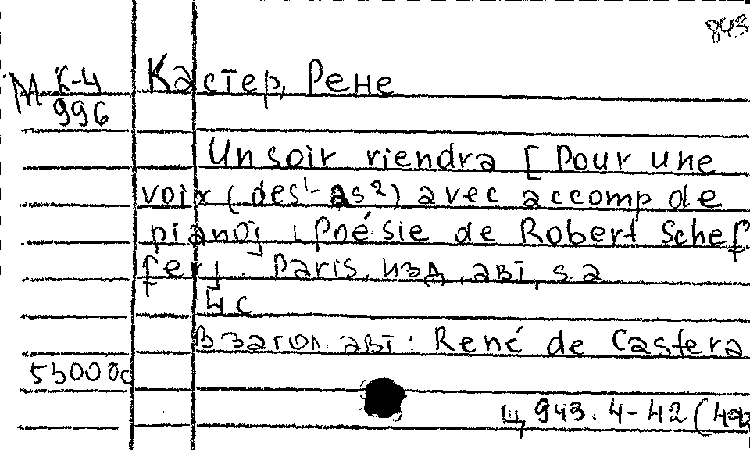 843
М К-4 Кастер, Рене
996
Un soir viendra [Pour une
voix (des¹-as²) avec accomp de
piano; Poésie de Robert Schef
fer]. Paris, изд. авт, s. a
4 с
В загол. авт: René de Castera
55000с
Ц 943. 4-42 (4